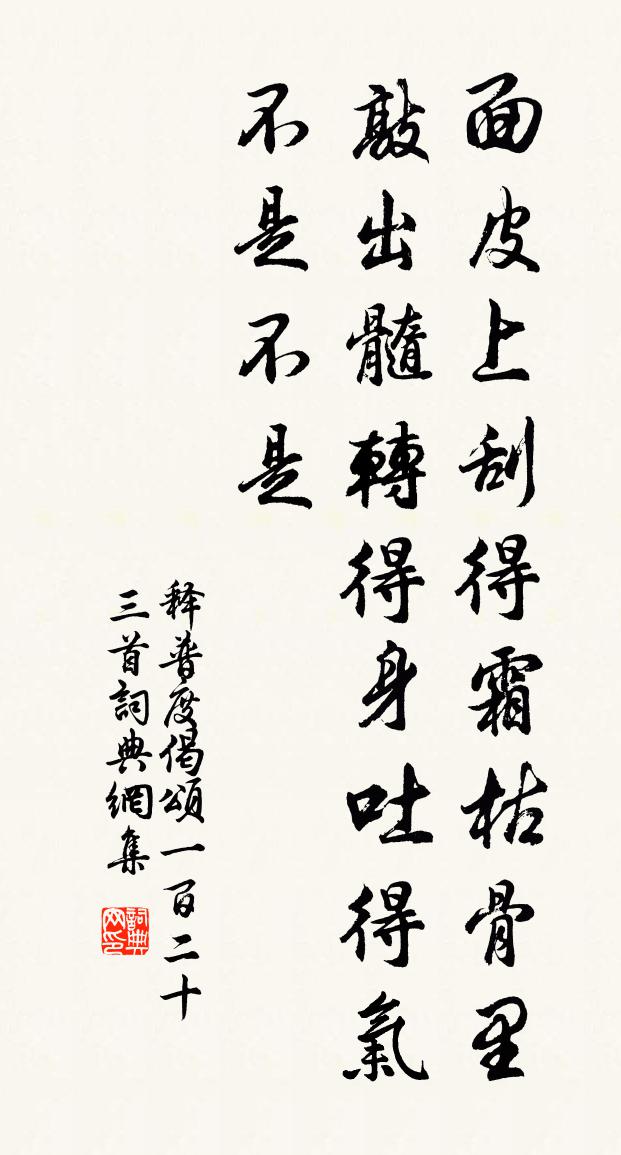 面皮上刮得霜枯骨里
敲出髓轉得身吐得氣
不是不是
释普度偈頌一百二十
三首詞典網集
詞典网印